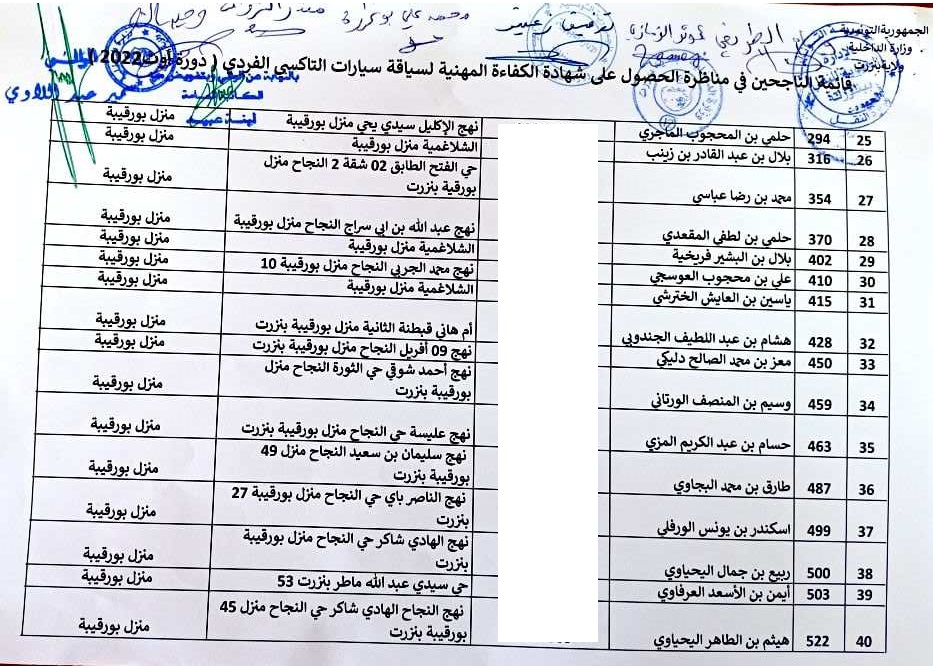 الجمهورية التونسية
وزارة الداخلية
ولاية بنزرت
قائمة الناجحين في مناظرة الحصول على شهادة الكفاءة المهنية لسياقة سيارات التاكسي الفردي ( دورة أوت 2022 )
25 294 حلمي بن المحجوب الماجري نهج الإكليل سيدي يحي منزل بورقيبة منزل بورقيبة
26 316 بلال بن عبد القادر بن زينب الشلاغمية منزل بورقيبة منزل بورقيبة
27 354 محمد بن رضا عباسي حي الفتح الطابق 02 شقة 2 النجاح منزل
بورقية بنزرت منزل بورقيبة
28 370 حلمي بن لطفي المقعدي نهج عبد الله بن ابي سراج النجاح منزل بورقيبة منزل بورقيبة
29 402 بلال بن البشير فريخية الشلاغمية منزل بورقيبة منزل بورقيبة
30 410 علي بن محجوب العوسجي نهج محمد الجربي النجاح منزل بورقيبة 10 منزل بورقيبة
31 415 ياسين بن العايش الخترشي الشلاغمية منزل بورقيبة منزل بورقيبة
32 428 هشام بن عبد اللطيف الجندوبي أم هاني قبطنة الثانية منزل بورقيبة بنزرت منزل بورقيبة
33 450 معز بن محمد الصالح دليكي نهج 09 أفريل النجاح منزل بورقيبة بنزرت منزل بورقيبة
34 459 وسيم بن المنصف الورتاني نهج أحمد شوقي حي الثورة النجاح منزل
بورقيبة بنزرت منزل بورقيبة
35 463 حسام بن عبد الكريم المزي نهج عليسة حي النجاح منزل بورقيبة بنزرت منزل بورقيبة
36 487 طارق بن محمد البجاوي نهج سليمان بن سعيد النجاح منزل 49
بورقيبة بنزرت منزل بورقيبة
37 499 اسكندر بن يونس الورفلي نهج الناصر باي حي النجاح منزل بورقيبة 27
بنزرت منزل بورقيبة
38 500 ربيع بن جمال اليحياوي نهج الهادي شاكر حي النجاح منزل بورقيبة
بنزرت منزل بورقيبة
39 503 أيمن بن الأسعد العرفاوي حي سيدي عبد الله ماطر بنزرت 53 منزل بورقيبة
40 522 هيثم بن الطاهر اليحياوي نهج النجاح الهادي شاكر حي النجاح منزل 45
بورقيبة بنزرت منزل بورقيبة